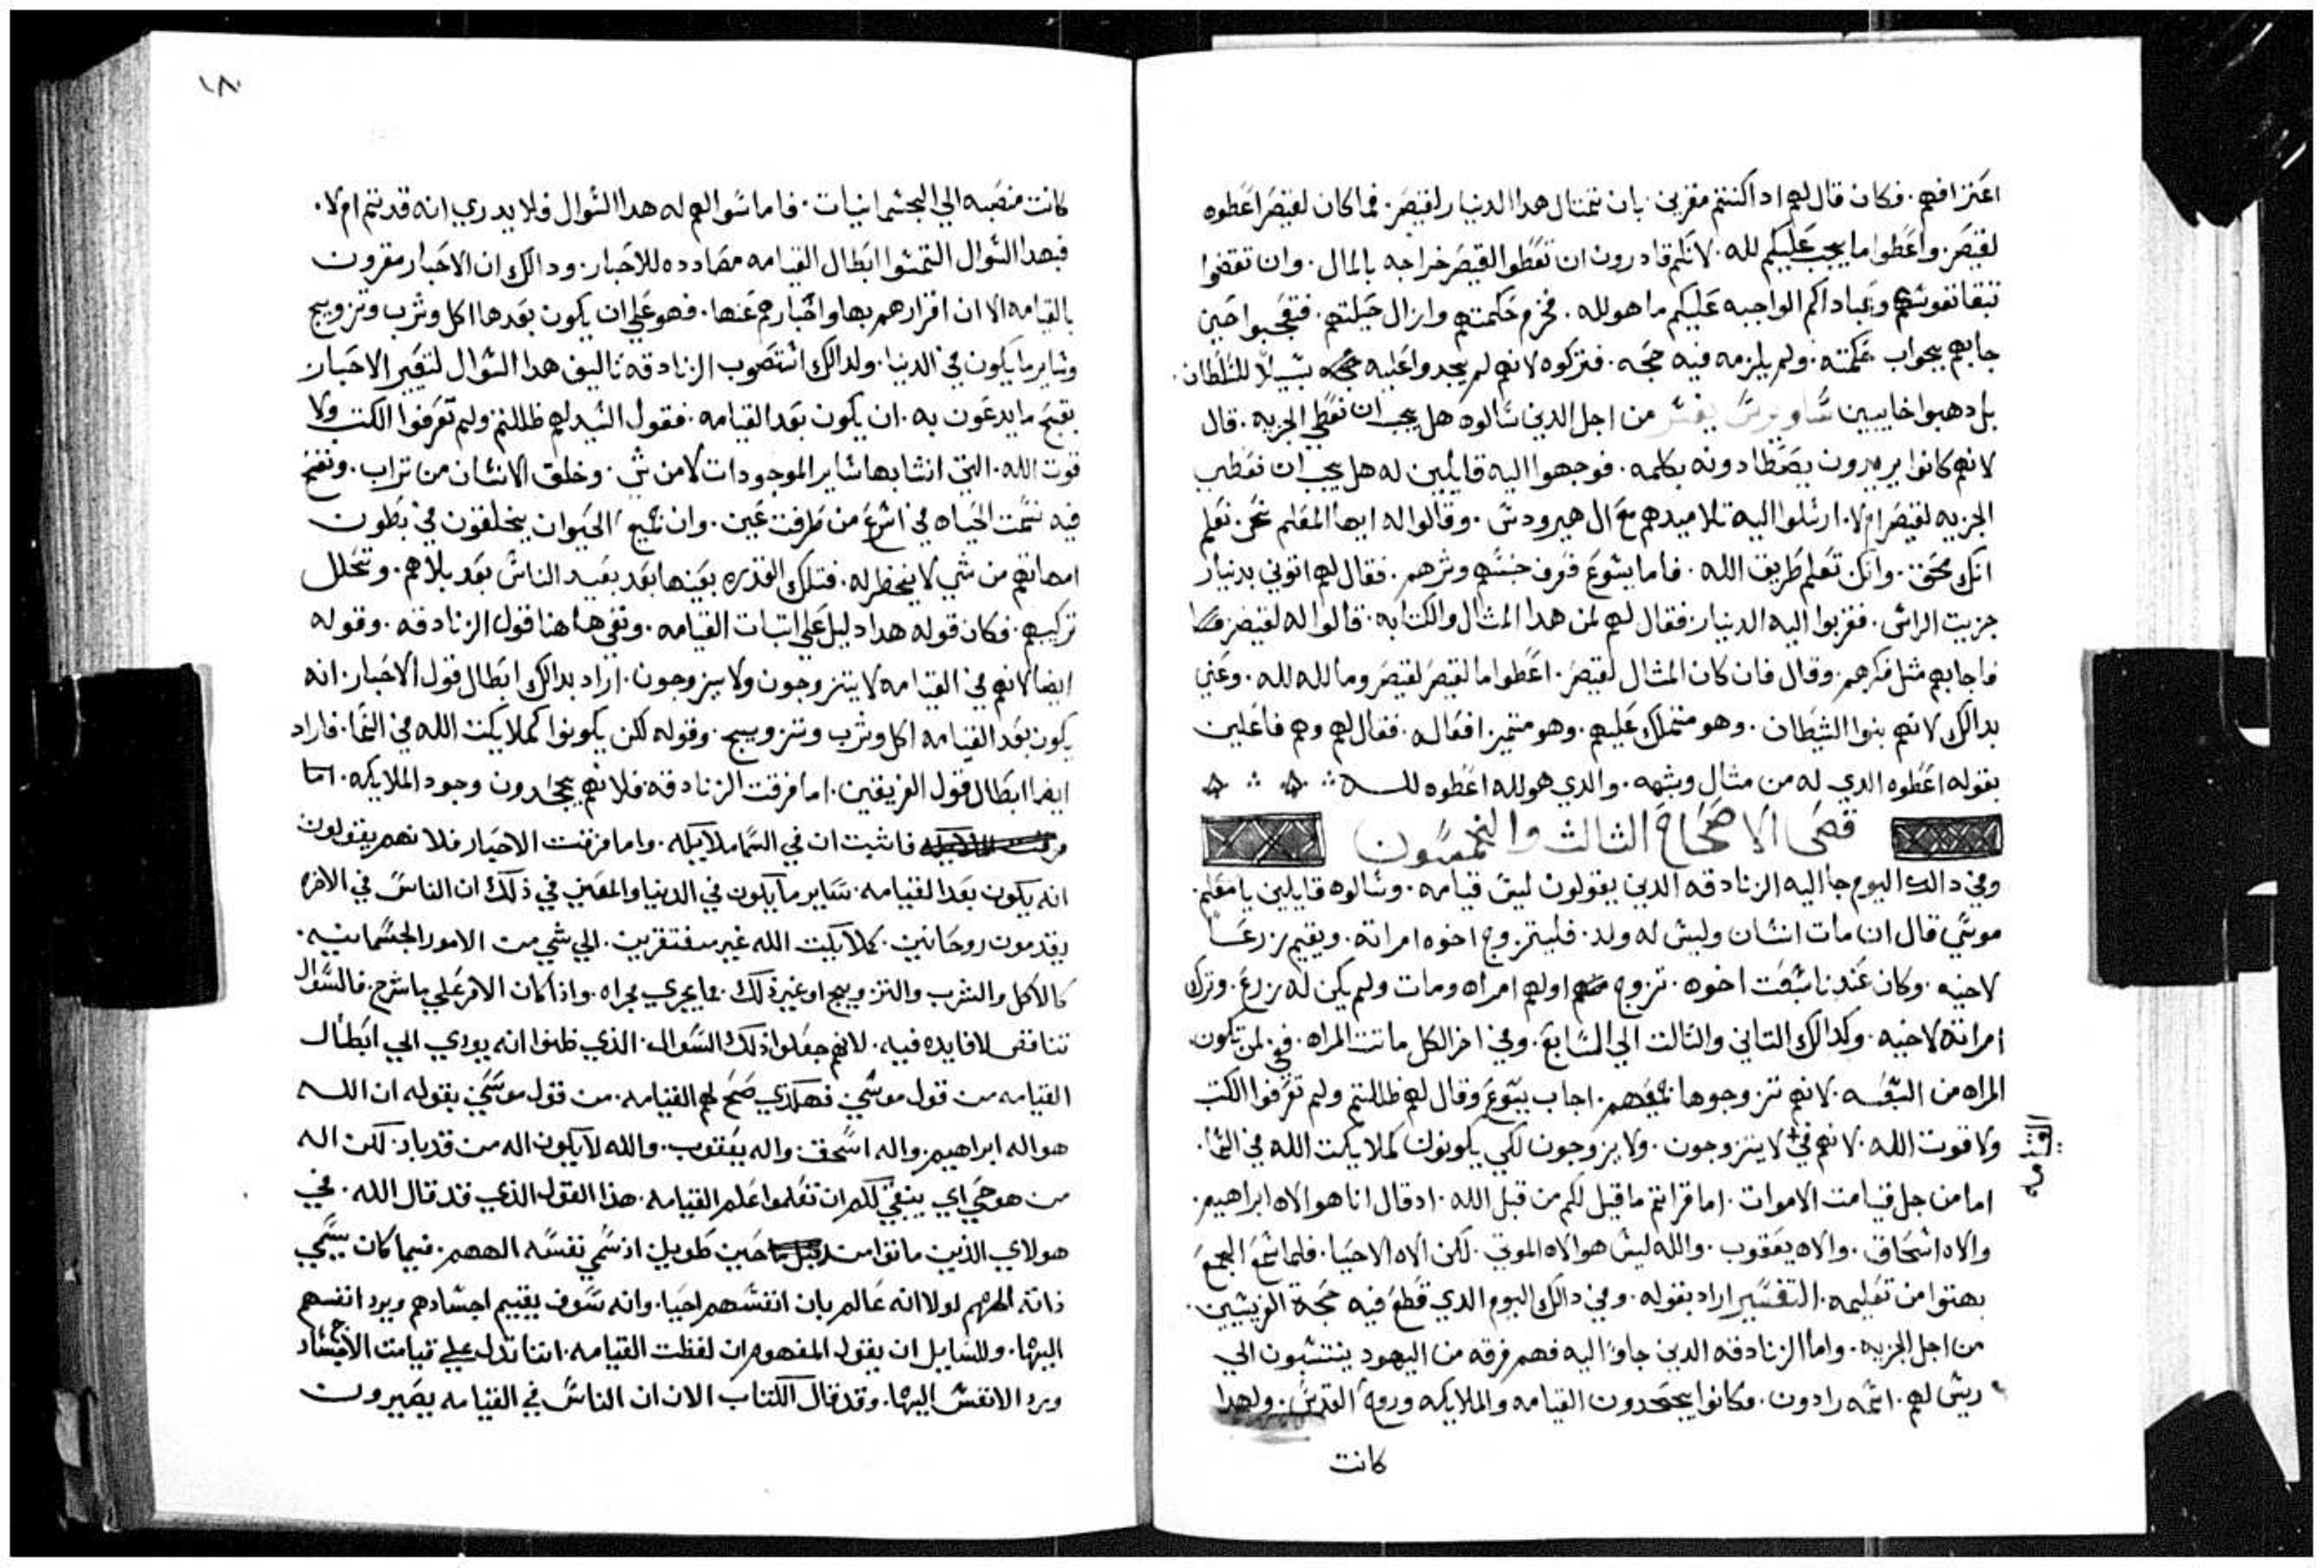 اعترافهم. فكان قال لهم اداكنتم مقرين. بان تمتال هدا الدنيار لقيصر. فما كان لقيصر اعطوه
لقيصر. واعطوا ما يجب عليكم لله. لانكم قادرون ان تعطوا لقيصر خراجه بالمال. وان تقضوا
نفوسكم وعباداكم الواجبه عليكم ما هو لله. فخزم حكمتهم وازال حيلتهم. فتعجبوا حين
جابهم بجواب حكمته. ولم يلزمه فيه حجه. فتركوه لانهم لم يجدوا عليه سبيلاً للسلطان.
بل دهبوا خايبين ساويرس يفسر من اجل الدين سالوه هل يجب ان نعطي الجزيه. قال
لانهم كانوا يريدون يصطادونه بكلمه. فوجهوا اليه قايلين له هل يجب ان نعطي
الجزيه لقيصر ام لا. ارسلوا اليه تلاميدهم مع ال هيرودس. وقالوا له ايها المعلم نحن نعلم
انك محق. وانك تعلم طريق الله. فاما يسوع فعرف خبثهم وشرهم. فقال لهم اتوني بدنيار
جزيت الراس. فقربوا اليه الدنيار. فقال لهم لمن هدا المثال والكتابه. قالوا له لقيصر
فاجابهم مثل فكرهم. وقال فان كان المثال لقيصر. اعطوا ما لقيصر لقيصر وما لله لله. وعني
بدالك لانهم بنوا الشيطان. وهو متملك عليهم. وهو متميز افعاله. فقال لهم وهم فاعلين
بقوله اعطوه الدي له من مثال وشبهه. والدي هو لله اعطوه لله
قصى الاصحاح الثالث والخمسون
وفي دالك اليوم جا اليه الزنادقه الدين يقولون ليس قيامه. وسالوه قايلين يا معلم.
موسي قال ان مات انسان وليس له ولد. فليتزوج اخوه امراته. ويقيم زرعاً
لاخيه. وكان عندنا سبعت اخوه. تزوج اولهم امراه ومات ولم يكن له زرع. وترك
امراته لاخيه. وكدالك التاني والتالت الي السابع. وفي اخر الكل ماتت المراه. ففي لمن تكون
المراه من السبعه. لانهم تزوجوها جميعهم. اجاب يسوع وقال لهم ظللتم ولم تعرفوا الكتب
ولا قوت الله. لانهم في + لا يتزوجون. ولا يزوجون لكي يكونون كملايكت الله في السما.
القيامه
اما من جل قيامت الاموات. اما قراتم ما قيل لكم من قبل الله. ادقال انا هو الاه ابراهيم.
والاه اسحاق. والاه يعقوب. والله ليس هو الاه الموتي. لكن الاه الاحيا. فلما سمع الجمع
بهتوا من تعليمه. التفسير اراد بقوله. وفي دالك اليوم الدي قطع فيه حجة الفريسين.
من اجل الجزيه. واما الزنادقه الدين جاوا اليه فهم فرقه من اليهود ينتسبون الي
ريس لهم. اسمه رادون. وكانوا يجحدون القيامه والملايكه وروح القدس. ولهدا
كانت
١٨٠
كانت منصبه الي الجسمانيات. فاما سوالهم له هدا السوال فلا يدري انه قد تم ام لا.
فبهدا السوال التمسوا ابطال القيامه مضادده للاحبار. ودالك ان الاحبار مقرون
بالقيامه الا ان اقرارهم بها واخبارهم عنها. فهو علي ان يكون بعدها اكل وشرب وتزويج
وساير ما يكون في الدنيا. ولدالك استصوب الزنادقه تاليف هدا السوال لتعير الاحبار
بقبح ما يدعون به. ان يكون بعد القيامه. فقول السيد لهم ظللتم ولم تعرفوا الكتب ولا
قوت الله. التي انشا بها ساير الموجودات لا من شي. وخلق الانسان من تراب. ونفخ
فيه نسمت الحياه في اسرع من طرفت عين. وان جميع الحيوان يخلقون في بطون
امهاتهم من شي لا يخطر له. فتلك القدره بعينها بعد بعيد الناس بعد بلاهم. وتحلل
تركيبهم. فكان قوله هدا دليل علي اتبات القيامه. ونفي هاهنا قول الزنادقه. وقوله
ايضا لانهم في القيامه لا يتزوجون ولا يزوجون. اراد بدالك ابطال قول الاحبار. انه
يكون بعد القيامه اكل وشرب وتزويج. وقوله لكن يكونوا كملايكت الله في السما. فاراد
ايضا ابطال قول الفريقين. اما فرقت الزنادقه فلانهم يجحدون وجود الملايكه. اما
فاثبت ان في السما ملايكه. واما فرقت الاحبار فلانهم يقولون
انه يكون بعد القيامه. ساير ما يكون في الدنيا والمعني في ذلك ان الناس في الاخره
يقدمون روحانين. كملايكت الله غير مفتقرين. الي شي من الامور الجسمانيه.
كالاكل والشرب والتزويج او غير ذلك. مما يجري مجراه. واذا كان الامر علي ما شرح. فالسوال
تناقص لا فايده فيه. لانهم جعلوا ذلك السوال. الذي ظنوا انه يودي الي ابطال
القيامه من قول موسي فهكذي صح لهم القيامه. من قول موسي بقوله ان الله
هو اله ابراهيم. واله اسحق. واله يعقوب. والله لا يكون اله من قد باد. لكن اله
من هو حي اي ينبغي لكم ان تعلموا علم القيامه. هذا القول الذي قد قال الله. في
هولاي الذين ماتوا من حين طويل. اذ سمي نفسه الههم. فيما كان يسمي
ذاته الههم لولا انه عالم بان انفسهم احيا. وانه سوف يقيم اجسادهم ويرد انفسهم
اليها. وللسايل ان يقول المفهوم ان لفظت القيامه. انما تدل علي قيامت الاجساد
ويرد الانفس اليها. وقد قال الكتاب الان ان الناس في القيامه يصيرون